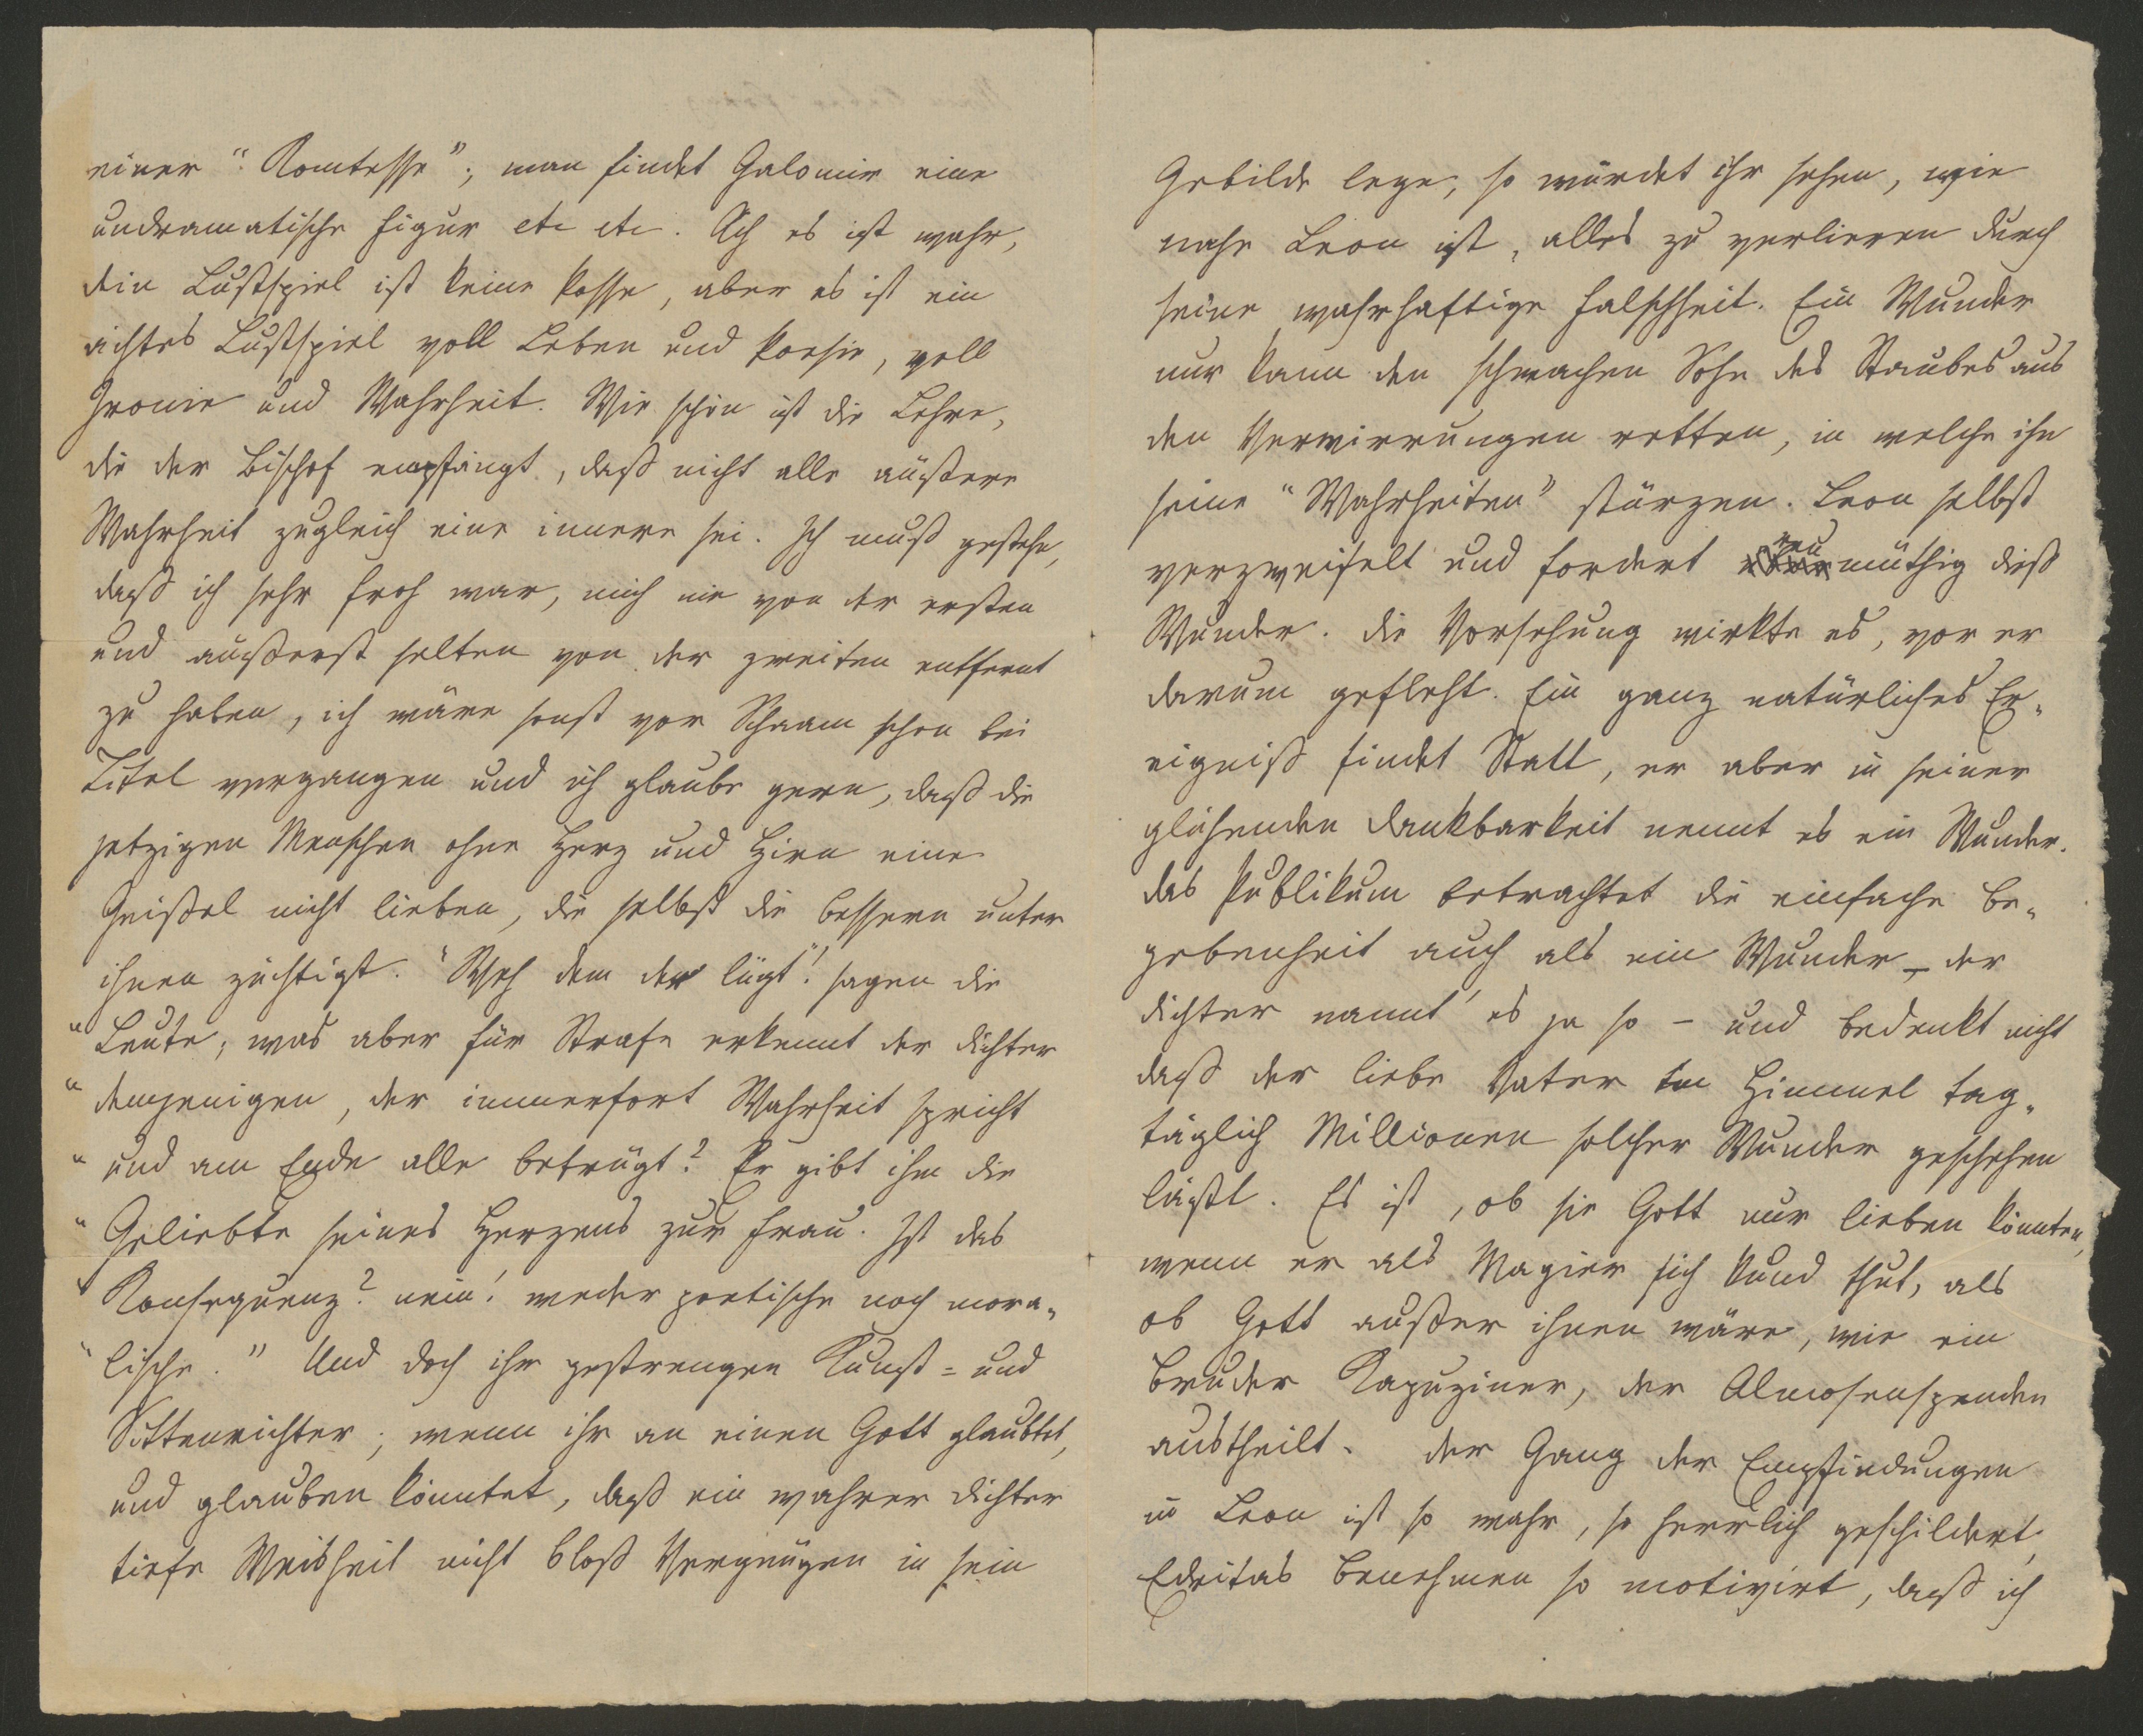 einer "Komtesse"; man findet Galomir eine
undramatische Figur etc etc. Ach es ist wahr,
dein Lustspiel ist keine Posse, aber es ist ein
ächtes Lustspiel voll Leben und Poesie, voll
Ironie und Wahrheit. Wie schön ist die Lehre,
die der Bischof empfängt, daß nicht alle äußere
Wahrheit zugleich eine innere sei. Ich muß gestehn,
daß ich sehr froh war, mich nie von der ersten
und äußerst selten von der zweiten entfernt
zu haben, ich wäre sonst vor Schaam schon bei
Titel vergangen und ich glaube gern, daß die
jetzigen Menschen ohne Herz und Hirn eine
Geißel nicht lieben, die selbst die bessern unter
ihnen züchtigt. "Weh dem der lügt"! sagen die
"Leute, was aber für Strafe erkennt der Dichter
"demjenigen, der immerfort Wahrheit spricht
"und am Ende alle betrügt? Er gibt ihm die
"Geliebte seines Herzens zur Frau. Ist das
"Konsequenz? nein! weder poetische noch mora-
"lische." Und doch ihr gestrengen Kunst- und
Sittenrichter; wenn ihr an einen Gott glaubtet,
und glauben könntet, daß ein wahrer Dichter
tiefe Weisheit nicht bloß Vergnügen in sein
Gebilde lege, so würdet ihr sehen, wie
nahe Leon ist, alles zu verlieren durch
seine wahrhaftige Falschheit. Ein Wunder
nur kann den schwachen Sohn des Staubes aus
den Verwirrungen retten, in welche ihn
seine "Wahrheiten" stürzen. Leon selbst
verzweifelt und fordert reumüthig dieß
Wunder. Die Vorsehung wirkte es, vor er
darum gefleht. Ein ganz natürliches Er-
eigniß findet Statt, er aber in seiner
glühenden Dankbarkeit nennt es ein Wunder.
das Publikum betrachtet die einfache Be-
gebenheit auch als ein Wunder – der
Dichter nannt' es ja so – und bedenkt nicht
daß der liebe Vater im Himmel tag-
täglich Millionen solcher Wunder geschehen
läßt. Es ist, ob sie Gott nur lieben könnten,
wenn er als Magier sich kund thut, als
ob Gott außer ihnen wäre, wie ein
Bruder Kapuziner, der Almosenspenden
austheilt. Der Gang der Empfindungen
in Leon ist so wahr, so herrlich geschildert,
Edritas Benehmen so motivirt, daß ich